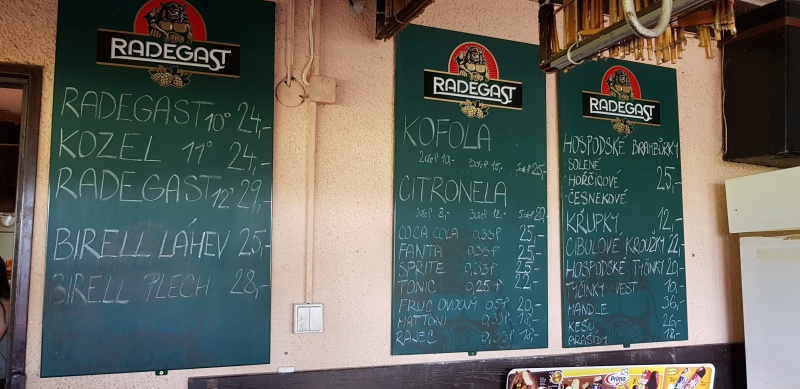 RADEGAST
RADEGAST 10° 24,-
KOZEL 11° 24,-
RADEGAST 12° 29,-
BIRELL LÁHEV 25,-
BIRELL PLECH 28,-
RADEGAST
KOFOLA
2dcl 10,- 3dcl 15,- 5dcl 25,-
CITRONELA
2dcl 8,- 3dcl 12,- 5dcl 20,-
COCA COLA 0,33l 25,-
FANTA 0,33l 25,-
SPRITE 0,33l 25,-
TONIC 0,25l 22,-
FRUC OVOCNÝ 0,5l 20,-
MATTONI 0,33l 18,-
RAJEC 0,33l 18,-
RADEGAST
HOSPODSKÉ BRAMBŮRKY
- SOLENÉ
- HOŘČICOVÉ 25,-
- ČESNEKOVÉ
KŘUPKY 12,-
CIBULOVÉ KROUŽKY 22,-
HOSPODSKÉ TYČINKY 20,-
TYČINKY VEST 19,-
MANDLE 36,-
KEŠU 26,-
ARAŠÍDY 18,-
Prima